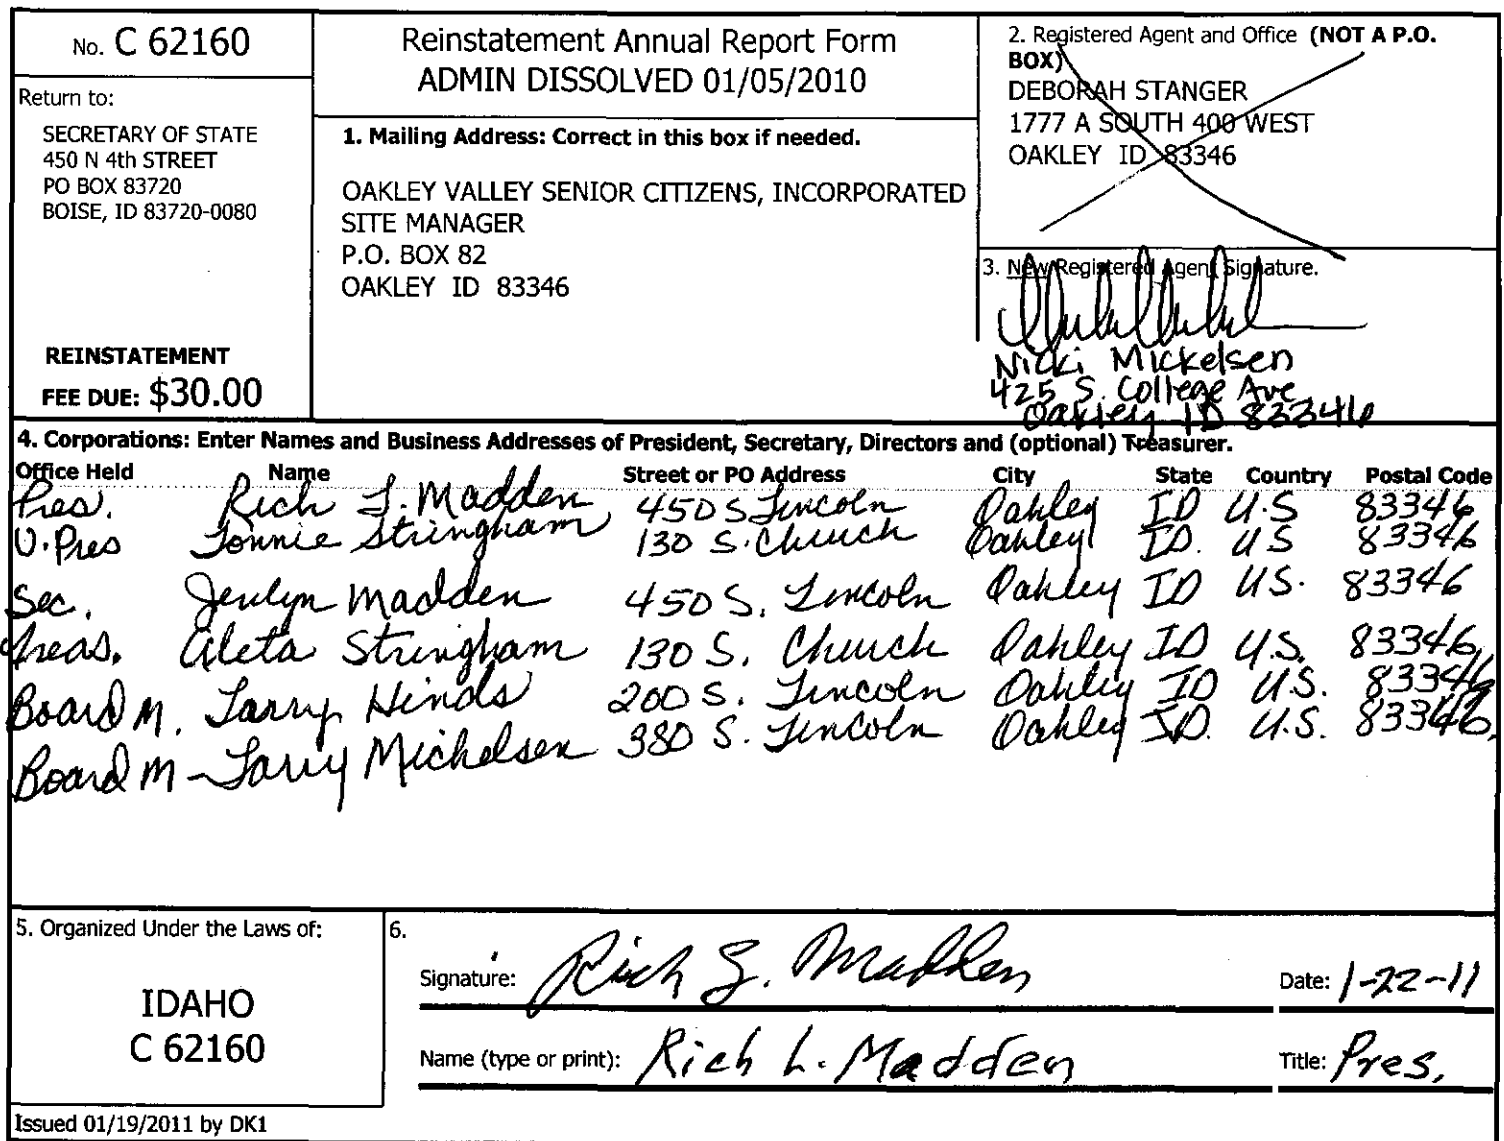 No. C 62160
Return to:
SECRETARY OF STATE
450 N 4th STREET
PO BOX 83720
BOISE, ID 83720-0080
REINSTATEMENT
FEE DUE: $30.00
Reinstatement Annual Report Form
ADMIN DISSOLVED 01/05/2010
1. Mailing Address: Correct in this box if needed.
OAKLEY VALLEY SENIOR CITIZENS, INCORPORATED
SITE MANAGER
P.O. BOX 82
OAKLEY ID 83346
2. Registered Agent and Office (NOT A P.O.
BOX)
DEBORAH STANGER
1777 A SOUTH 400 WEST
OAKLEY ID 83346
3. New Registered Agent Signature.
Nicki Mickelsen
425 S. College Ave
Oakley ID 83346
4. Corporations: Enter Names and Business Addresses of President, Secretary, Directors and (optional) Treasurer.
Office Held Name Street or PO Address City State Country Postal Code
Pres. Rich L. Madden 450 S Lincoln Oakley ID U.S 83346
V. Pres Lonnie Stringham 130 S. Church Oakley ID. US 83346
Sec. Jerilyn Madden 450 S. Lincoln Oakley ID US. 83346
Treas. Aleta Stringham 130 S. Church Oakley ID U.S. 83346
Board M. Larry Hinds 200 S. Lincoln Oakley ID U.S. 83346
Board M - Larry Mickelsen 380 S. Lincoln Oakley ID. U.S. 83346
5. Organized Under the Laws of:
IDAHO
C 62160
6.
Signature: Rich L. Madden Date: 1-22-11
Name (type or print): Rich L. Madden Title: Pres.
Issued 01/19/2011 by DK1